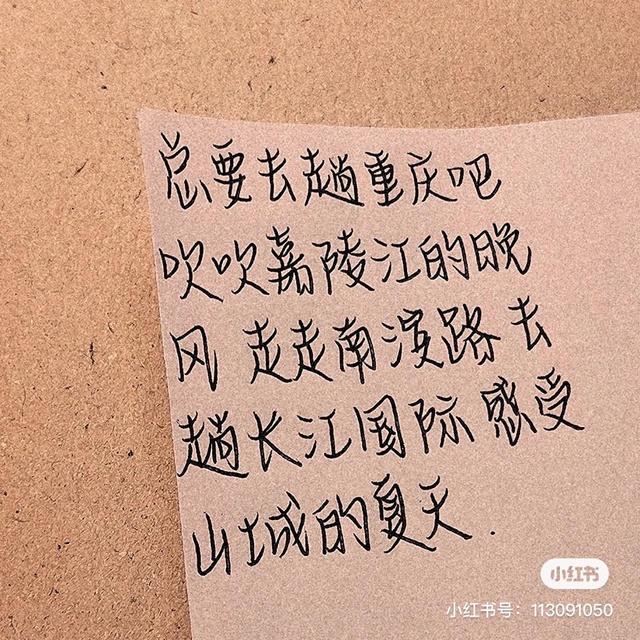 总要去趟重庆吧
吹吹嘉陵江的晚
风 走走南滨路 去
趟长江国际 感受
山城的夏天.
小红书
小红书号：113091050